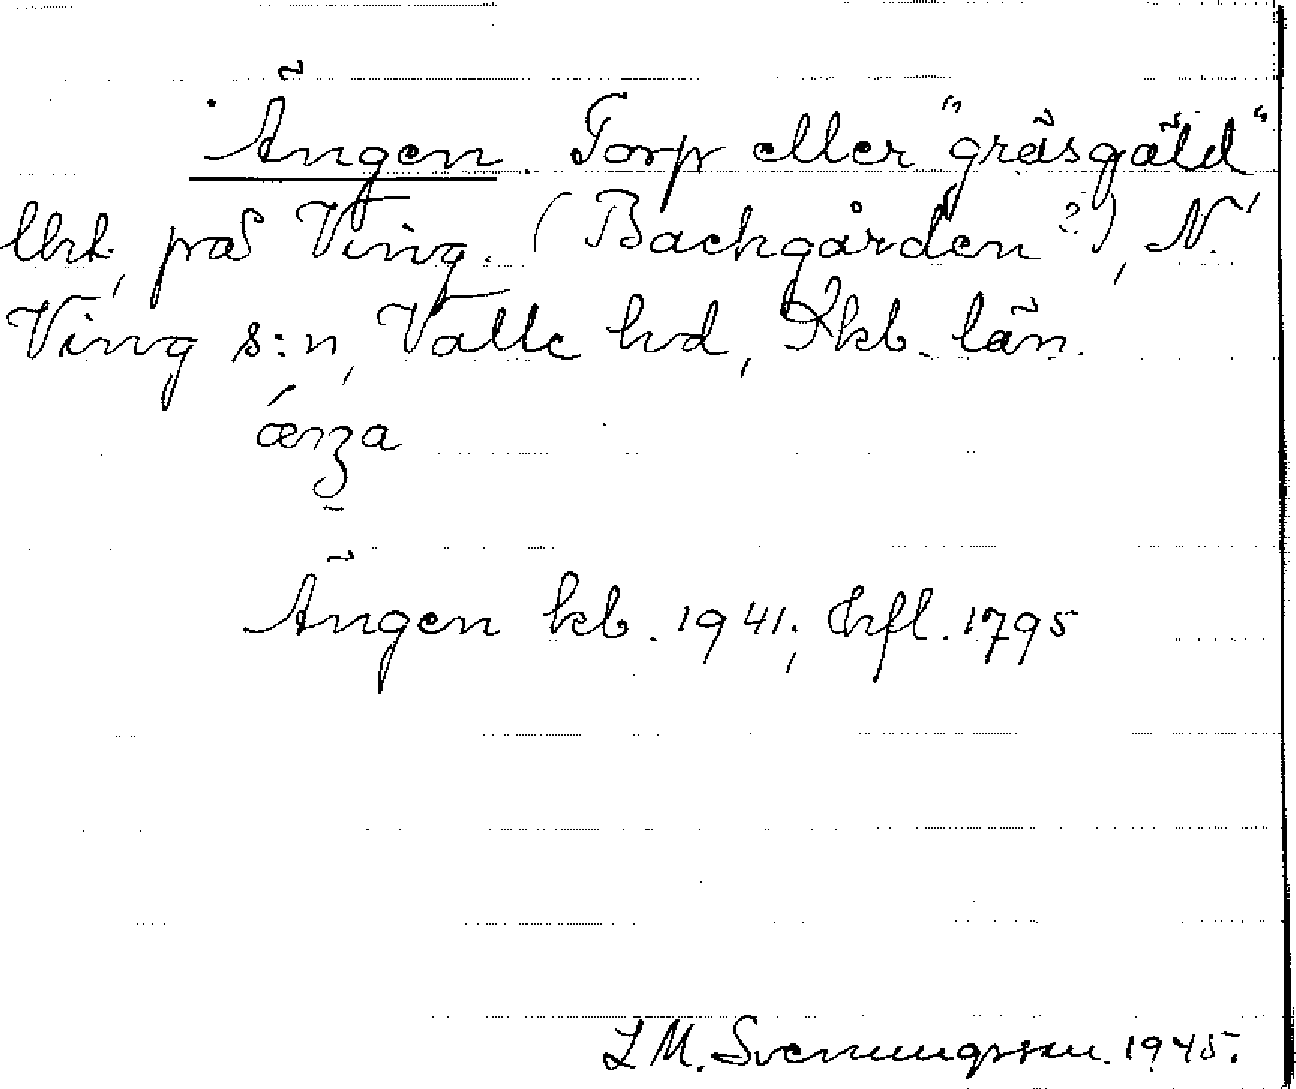 Ängen Torp eller "gräsgäld"
lht, på Ving. (Backgården?), N.
Ving s:n, Valle hd, Skb. län.
Ängen kb. 1941; hfl. 1795
L M. Svenungsson. 1945.